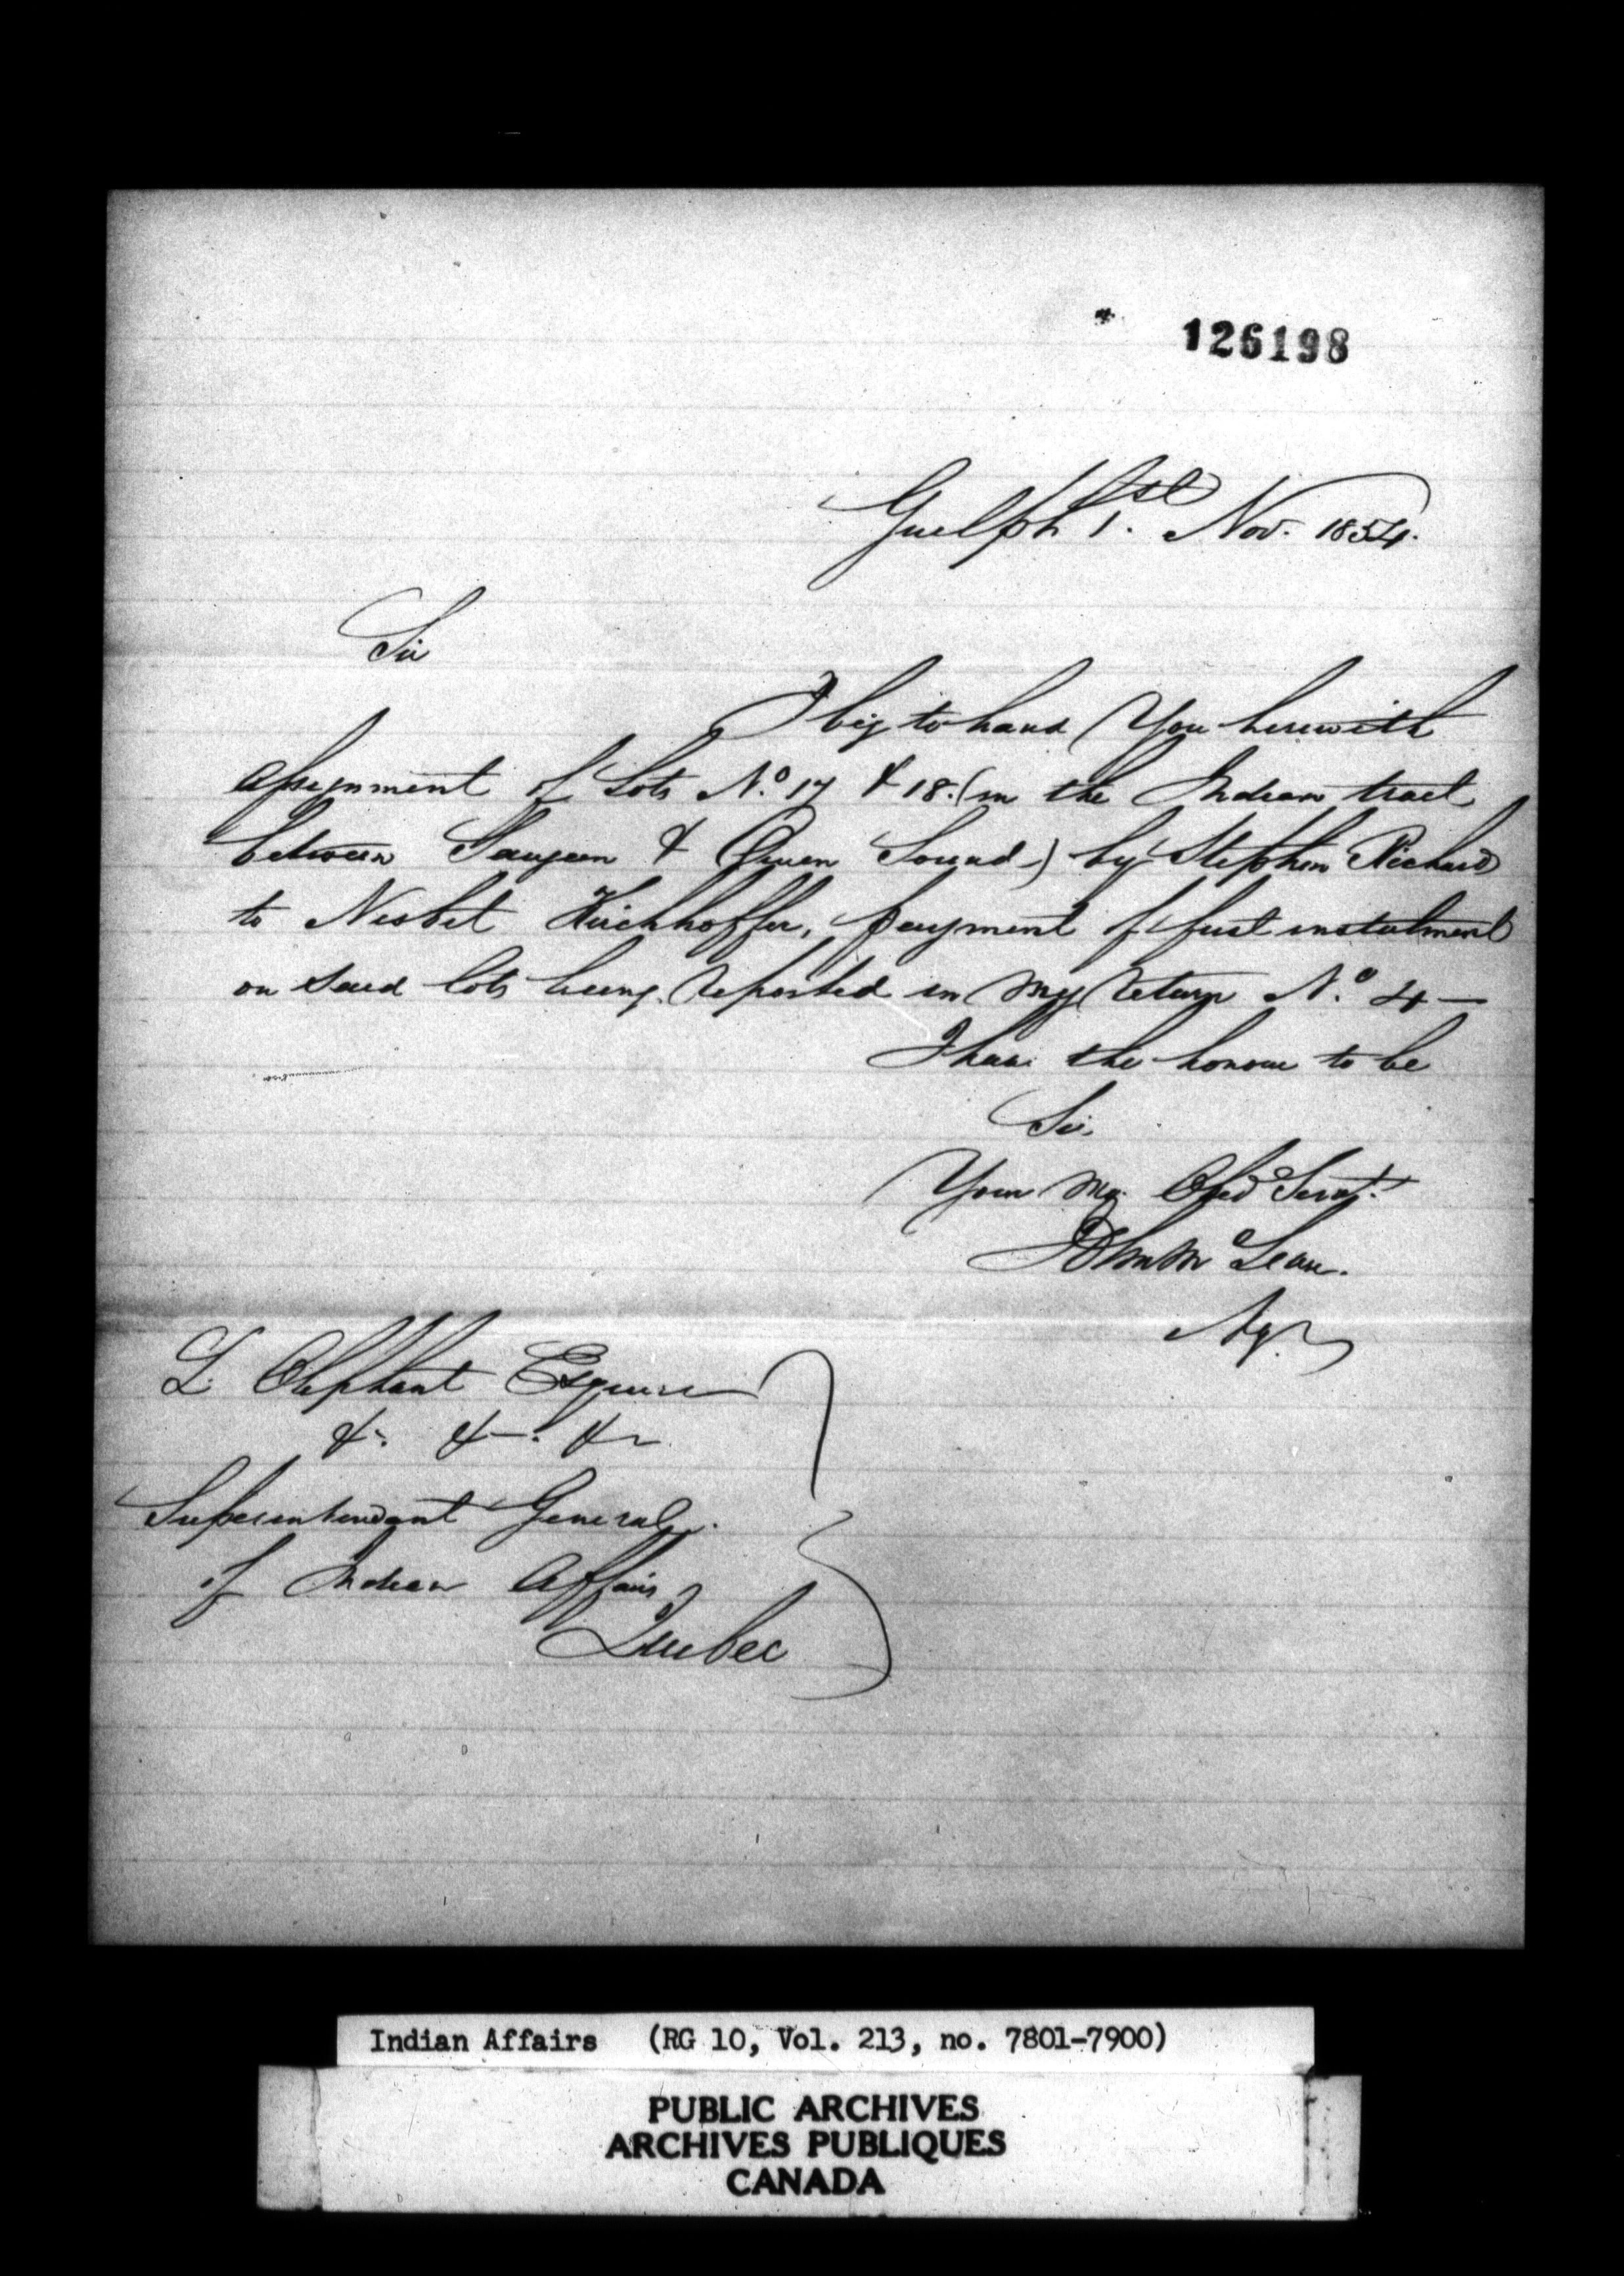 126198
Guelph 1st. Nov. 1854.
Sir
I beg to hand You herewith
Assignment of Lots No. 17 & 18. (in the Indian tract
between Saugeen & Owen Sound) by Stephen Richard
to Nesbet Kirchhoffer, payment of first instalment
on said lots being reported in my return No. 4 —
I have the honour to be
Sir,
Your Mo. Obed Servt.
Lean.
Agt
L. Oliphant Esquire
&. &. &
Superintendant General.
of Indian Affairs
Quebec
Indian Affairs (RG 10, Vol. 213, no. 7801-7900)
PUBLIC ARCHIVES
ARCHIVES PUBLIQUES
CANADA